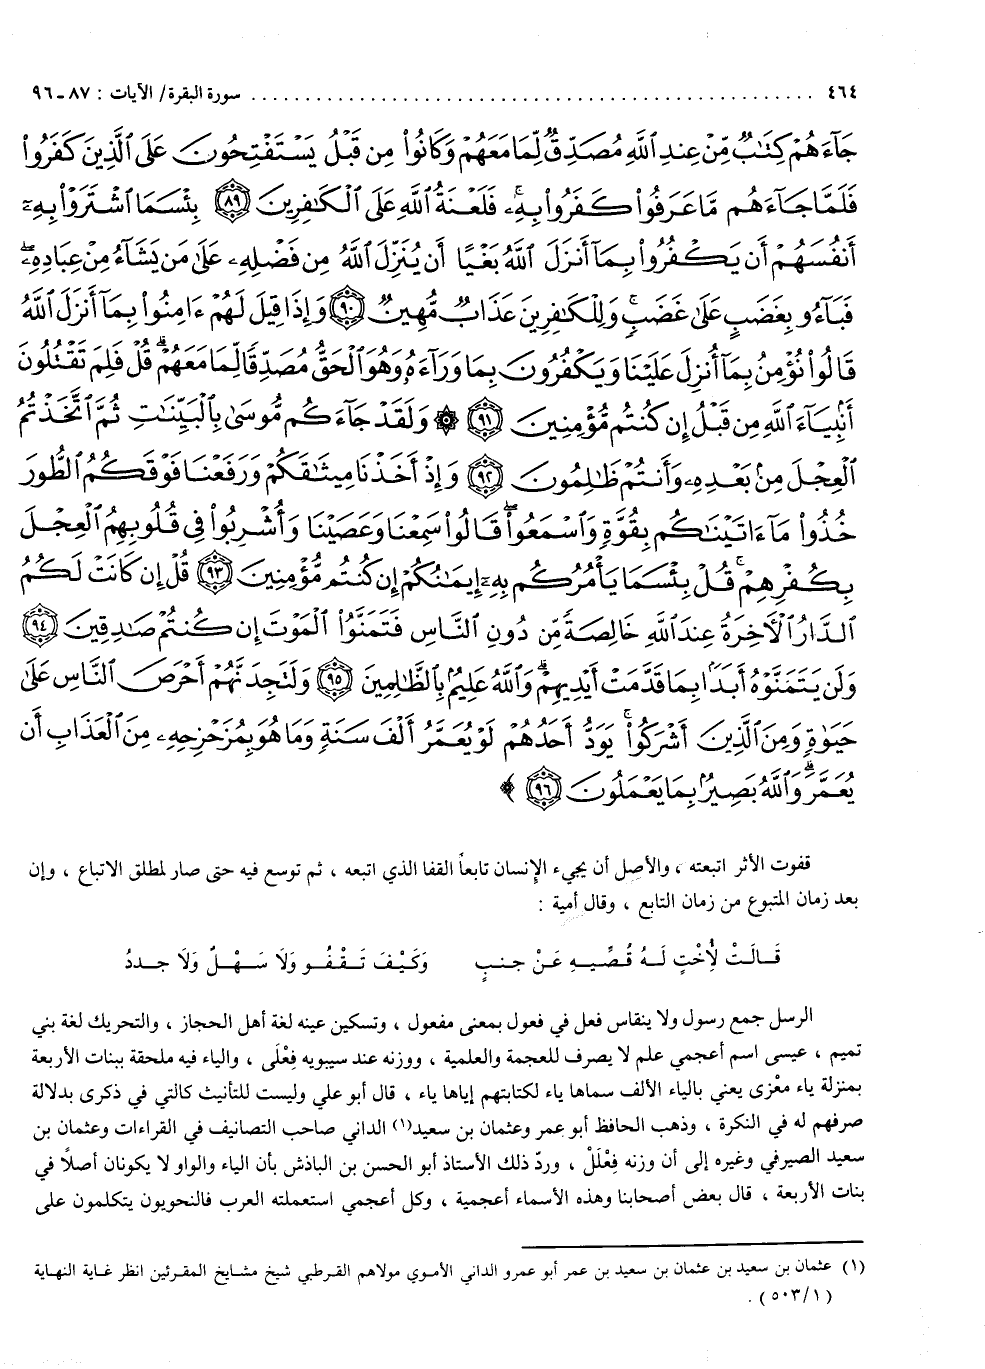 ٤٦٤ ........................................................ سورة البقرة/ الآيات : ٨٧ـ٩٦
جَآءَهُمْ كِتَٰبٌ مِّنْ عِندِ ٱللَّهِ مُصَدِّقٌ لِّمَا مَعَهُمْ وَكَانُوا۟ مِن قَبْلُ يَسْتَفْتِحُونَ عَلَى ٱلَّذِينَ كَفَرُوا۟
فَلَمَّا جَآءَهُم مَّا عَرَفُوا۟ كَفَرُوا۟ بِهِۦ ۚ فَلَعْنَةُ ٱللَّهِ عَلَى ٱلْكَٰفِرِينَ ﴿٨٩﴾ بِئْسَمَا ٱشْتَرَوْا۟ بِهِۦٓ
أَنفُسَهُمْ أَن يَكْفُرُوا۟ بِمَآ أَنزَلَ ٱللَّهُ بَغْيًا أَن يُنَزِّلَ ٱللَّهُ مِن فَضْلِهِۦ عَلَىٰ مَن يَشَآءُ مِنْ عِبَادِهِۦ ۖ
فَبَآءُو بِغَضَبٍ عَلَىٰ غَضَبٍ ۚ وَلِلْكَٰفِرِينَ عَذَابٌ مُّهِينٌ ﴿٩٠﴾ وَإِذَا قِيلَ لَهُمْ ءَامِنُوا۟ بِمَآ أَنزَلَ ٱللَّهُ
قَالُوا۟ نُؤْمِنُ بِمَآ أُنزِلَ عَلَيْنَا وَيَكْفُرُونَ بِمَا وَرَآءَهُۥ وَهُوَ ٱلْحَقُّ مُصَدِّقًا لِّمَا مَعَهُمْ ۗ قُلْ فَلِمَ تَقْتُلُونَ
أَنۢبِيَآءَ ٱللَّهِ مِن قَبْلُ إِن كُنتُم مُّؤْمِنِينَ ﴿٩١﴾ ۞ وَلَقَدْ جَآءَكُم مُّوسَىٰ بِٱلْبَيِّنَٰتِ ثُمَّ ٱتَّخَذْتُمُ
ٱلْعِجْلَ مِنۢ بَعْدِهِۦ وَأَنتُمْ ظَٰلِمُونَ ﴿٩٢﴾ وَإِذْ أَخَذْنَا مِيثَٰقَكُمْ وَرَفَعْنَا فَوْقَكُمُ ٱلطُّورَ
خُذُوا۟ مَآ ءَاتَيْنَٰكُم بِقُوَّةٍ وَٱسْمَعُوا۟ ۖ قَالُوا۟ سَمِعْنَا وَعَصَيْنَا وَأُشْرِبُوا۟ فِى قُلُوبِهِمُ ٱلْعِجْلَ
بِكُفْرِهِمْ ۚ قُلْ بِئْسَمَا يَأْمُرُكُم بِهِۦٓ إِيمَٰنُكُمْ إِن كُنتُم مُّؤْمِنِينَ ﴿٩٣﴾ قُلْ إِن كَانَتْ لَكُمُ
ٱلدَّارُ ٱلْـَٔاخِرَةُ عِندَ ٱللَّهِ خَالِصَةً مِّن دُونِ ٱلنَّاسِ فَتَمَنَّوُا۟ ٱلْمَوْتَ إِن كُنتُمْ صَٰدِقِينَ ﴿٩٤﴾
وَلَن يَتَمَنَّوْهُ أَبَدًۢا بِمَا قَدَّمَتْ أَيْدِيهِمْ ۗ وَٱللَّهُ عَلِيمٌۢ بِٱلظَّٰلِمِينَ ﴿٩٥﴾ وَلَتَجِدَنَّهُمْ أَحْرَصَ ٱلنَّاسِ عَلَىٰ
حَيَوٰةٍ وَمِنَ ٱلَّذِينَ أَشْرَكُوا۟ ۚ يَوَدُّ أَحَدُهُمْ لَوْ يُعَمَّرُ أَلْفَ سَنَةٍ وَمَا هُوَ بِمُزَحْزِحِهِۦ مِنَ ٱلْعَذَابِ أَن
يُعَمَّرَ ۗ وَٱللَّهُ بَصِيرٌۢ بِمَا يَعْمَلُونَ ﴿٩٦﴾ ﴾
قفوت الأثر اتبعته ، والأصل أن يجيء الإنسان تابعاً القفا الذي اتبعه ، ثم توسع فيه حتى صار لمطلق الاتباع ، وإن
بعد زمان المتبوع من زمان التابع ، وقال أمية :
قَـالَـتْ لِأُخْتٍ لَـهُ قُـصِّـيـهِ عَـنْ جـنـبٍ وَكَـيْـفَ تَـقْـفُـو وَلَا سَـهْـلٌ وَلَا جـددُ
الرسل جمع رسول ولا ينقاس فعل في فعول بمعنى مفعول ، وتسكين عينه لغة أهل الحجاز ، والتحريك لغة بني
تميم ، عيسى اسم أعجمي علم لا يصرف للعجمة والعلمية ، ووزنه عند سيبويه فِعْلَى ، والياء فيه ملحقة ببنات الأربعة
بمنزلة ياء معْزى يعني بالياء الألف سماها ياء لكتابتهم إياها ياء ، قال أبو علي وليست للتأنيث كالتي في ذكرى بدلالة
صرفهم له في النكرة ، وذهب الحافظ أبو عمر وعثمان بن سعيد(١) الداني صاحب التصانيف في القراءات وعثمان بن
سعيد الصيرفي وغيره إلى أن وزنه فِعْلَلْ ، وردّ ذلك الأستاذ أبو الحسن بن الباذش بأن الياء والواو لا يكونان أصلاً في
بنات الأربعة ، قال بعض أصحابنا وهذه الأسماء أعجمية ، وكل أعجمي استعملته العرب فالنحويون يتكلمون على
(١) عثمان بن سعيد بن عثمان بن سعيد بن عمر أبو عمرو الداني الأموي مولاهم القرطبي شيخ مشايخ المقرئين انظر غاية النهاية
(٥٠٣/١) .